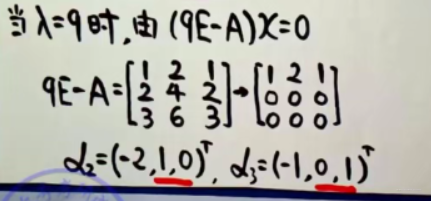 当λ=9时,由(9E-A)X=0
9E-A=[1 2 1; 2 4 2; 3 6 3]→[1 2 1; 0 0 0; 0 0 0]
α₂=(-2,1,0)ᵀ, α₃=(-1,0,1)ᵀ